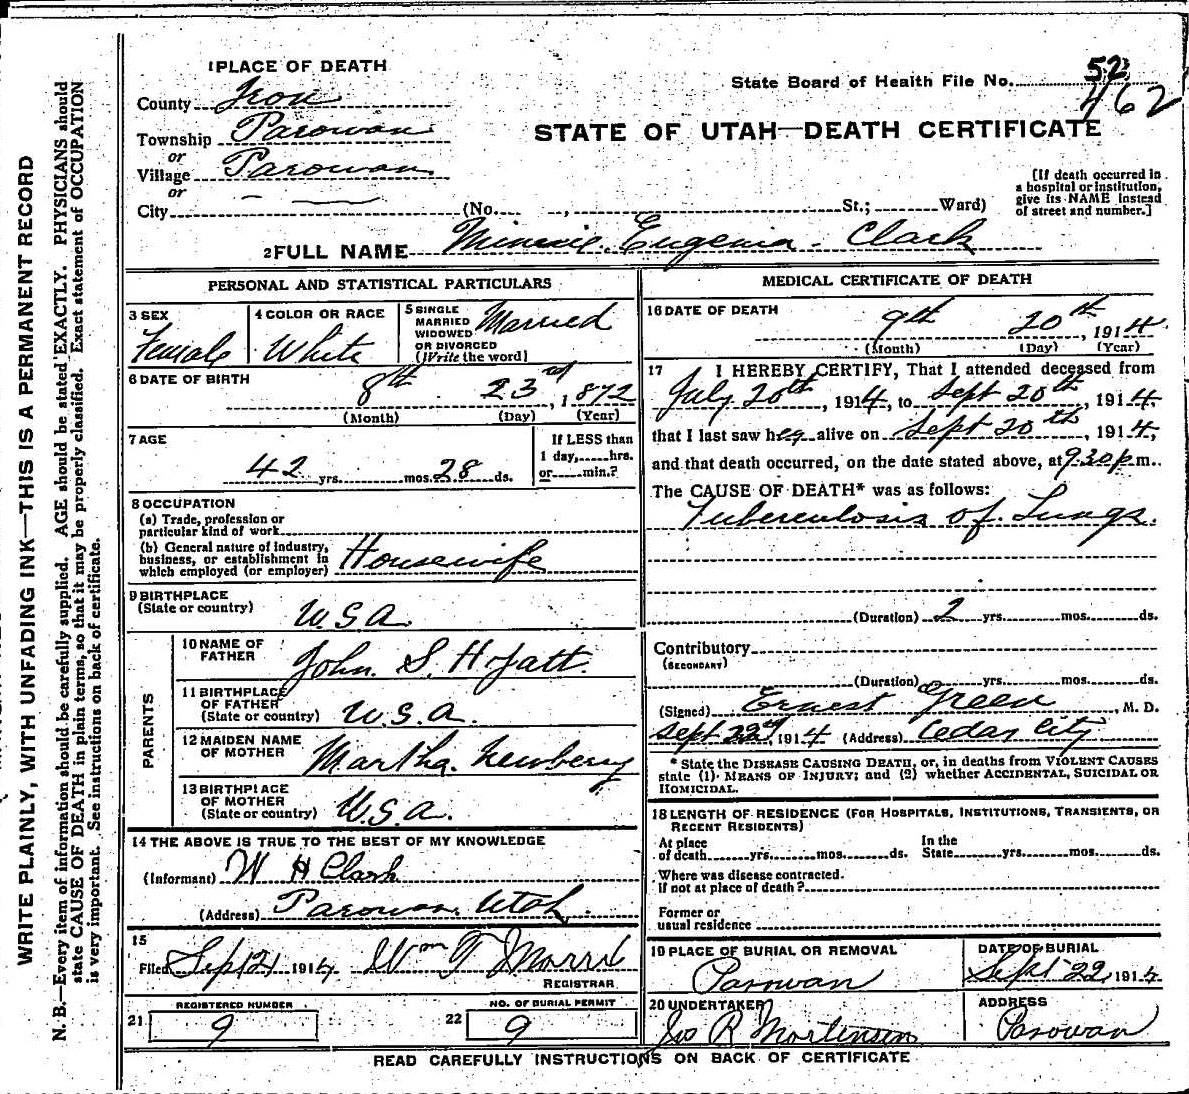 WRITE PLAINLY, WITH UNFADING INK—THIS IS A PERMANENT RECORD
N. B.—Every item of information should be carefully supplied. AGE should be stated EXACTLY. PHYSICIANS should
state CAUSE OF DEATH in plain terms, so that it may be properly classified. Exact statement of OCCUPATION
is very important. See instructions on back of certificate.
1 PLACE OF DEATH
County Iron
Township Parowan
or
Village Parowan
or
City
State Board of Health File No. 52
462
STATE OF UTAH—DEATH CERTIFICATE
(No. , St.; Ward)
[If death occurred in
a hospital or institution,
give its NAME instead
of street and number.]
2 FULL NAME Minnie Eugenia Clark
PERSONAL AND STATISTICAL PARTICULARS
3 SEX
Female
4 COLOR OR RACE
White
5 SINGLE
MARRIED
WIDOWED
OR DIVORCED
(Write the word)
Married
6 DATE OF BIRTH
8th 23rd, 1872
(Month) (Day) (Year)
7 AGE
42 yrs. mos. 28 ds.
If LESS than
1 day, hrs.
or min.?
8 OCCUPATION
(a) Trade, profession or
particular kind of work
(b) General nature of industry,
business, or establishment in
which employed (or employer) Housewife
9 BIRTHPLACE
(State or country)
U.S.A.
PARENTS
10 NAME OF
FATHER
John S. Hyatt.
11 BIRTHPLACE
OF FATHER
(State or country) U.S.A.
12 MAIDEN NAME
OF MOTHER Martha Newberry
13 BIRTHPLACE
OF MOTHER
(State or country) U.S.A.
14 THE ABOVE IS TRUE TO THE BEST OF MY KNOWLEDGE
(Informant) W H Clark
(Address) Parowan Utah.
15
Filed Sept 21 1914 Wm T Morris
REGISTRAR
REGISTERED NUMBER
21 9
NO. OF BURIAL PERMIT
22 9
MEDICAL CERTIFICATE OF DEATH
16 DATE OF DEATH
9th 20th, 1914
(Month) (Day) (Year)
17 I HEREBY CERTIFY, That I attended deceased from
July 20th, 1914, to Sept 20th, 1914,
that I last saw her alive on Sept 20th, 1914,
and that death occurred, on the date stated above, at 9.30 p.m.
The CAUSE OF DEATH* was as follows:
Tuberculosis of Lungs.
(Duration) 2 yrs. mos. ds.
Contributory
(SECONDARY)
(Duration) yrs. mos. ds.
(Signed) Ernest Green, M. D.
Sept 22nd, 1914 (Address) Cedar City
* State the DISEASE CAUSING DEATH, or, in deaths from VIOLENT CAUSES
state (1) MEANS OF INJURY; and (2) whether ACCIDENTAL, SUICIDAL OR
HOMICIDAL.
18 LENGTH OF RESIDENCE (FOR HOSPITALS, INSTITUTIONS, TRANSIENTS, OR
RECENT RESIDENTS)
At place
of death yrs. mos. ds.
In the
State yrs. mos. ds.
Where was disease contracted.
if not at place of death?
Former or
usual residence
19 PLACE OF BURIAL OR REMOVAL
Parowan
DATE OF BURIAL
Sept 22, 1914
20 UNDERTAKER
Jos R Mortensen
ADDRESS
Parowan
READ CAREFULLY INSTRUCTIONS ON BACK OF CERTIFICATE